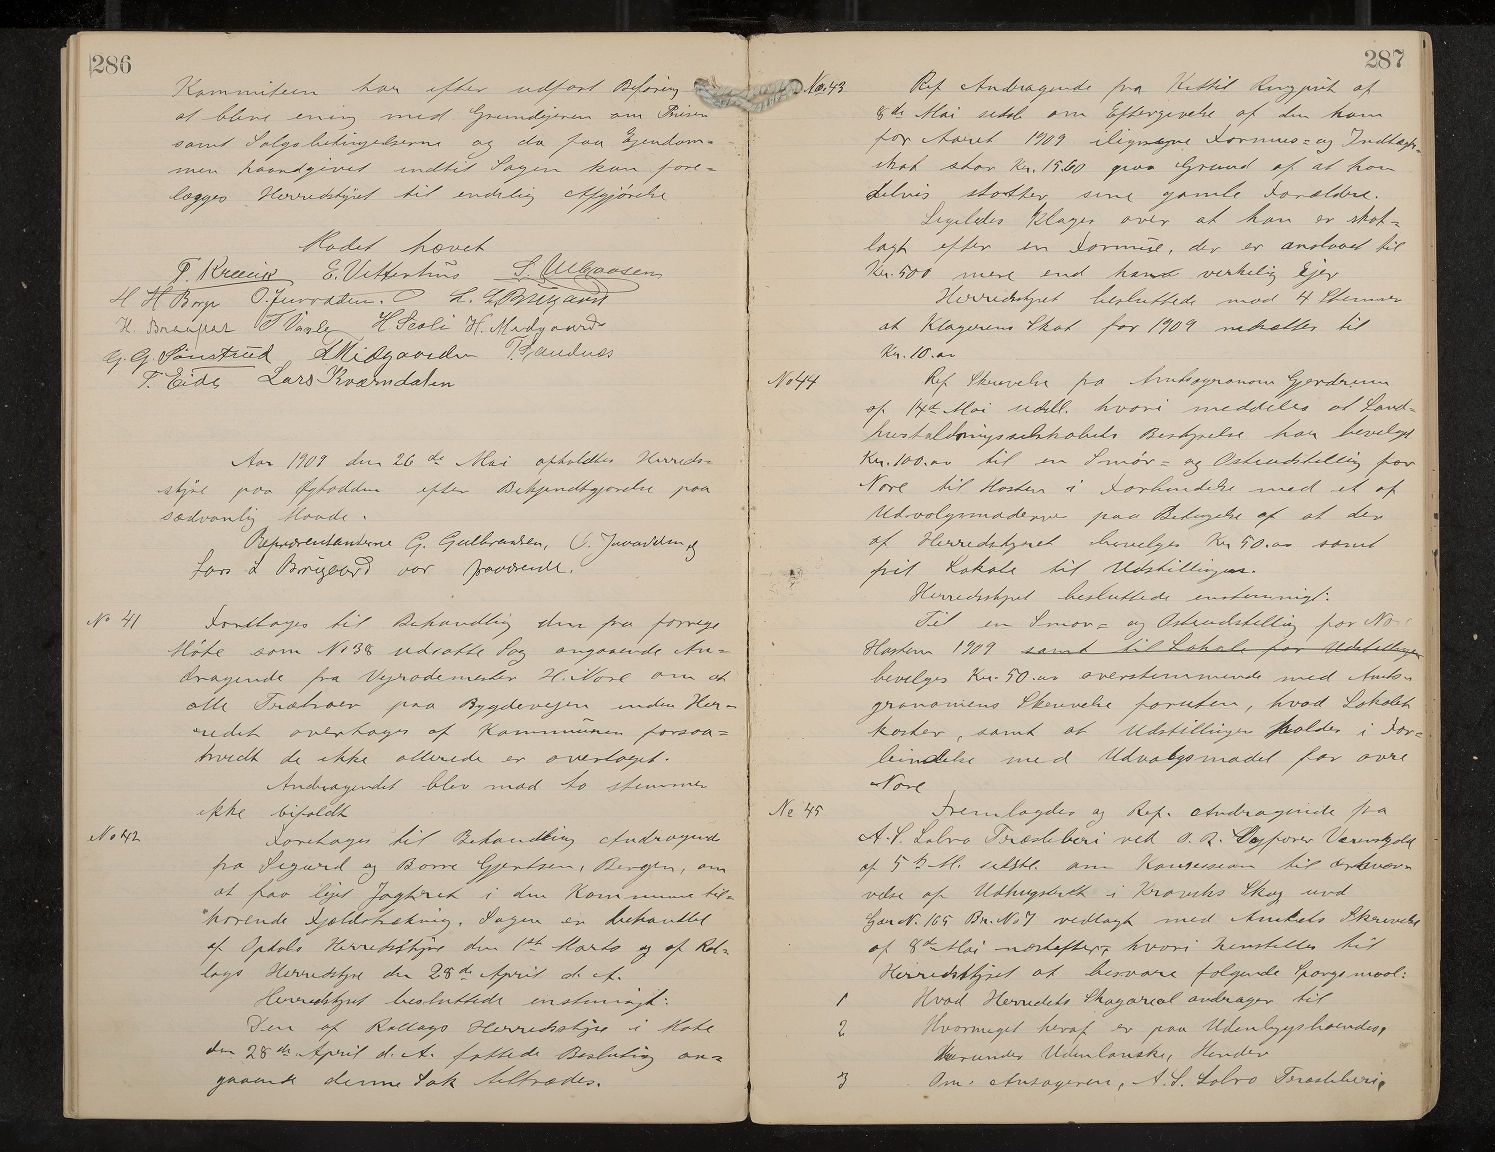 286
Kommiteen har efter udført Befaring
at blive enig med Grundejeren om Prisen
samt Salgsbetingelserne og da faa Ejendom=
men haandgivet indtil Sagen kan fore=
lægges Herredstyret til endelig Afgjørelse
Mødet hævet
T. Kravik E. Vetterhus
H H Borge
T Varley H Scoli H. Medgaarden
G. G. Sønsterud Midgaarden T Sandnæs
T. Eide Lars Kværndalen
Aar 1909 den 26 de Mai afholdtes Herreds=
styre paa Øghodden efter Bekjendtgjørelse paa
sædvanlig Maade.
Repræsentanterne G. Gulbrandsen, O. Juvodden og
Lars L Brogaard var fraværende.
No 41 Foretages til Behandling den fra forrige
Møte som No 38 udsatte Sag angaaende An=
dragende fra Vejrodemester H. Nore om at
alle Træbroer paa Bygdevejen inden Her=
redet overtages af Kommunen forsaa=
hvidt de ikke allerede er overtaget.
Andragendet blev mod to stemmer
ikke bifaldt
No 42 Foretages til Behandling Andragende
fra Sigurd og Børre Gjertsen, Bergen, om
at faa lejet Jagtret i den Kommune til=
hørende Fjeldstrækning. Sagen er behandlet
af Opdals Herredsstyre den 1ste Marts og af Rol=
lags Herredstyre den 28de April d. A.
Herredstyret besluttede enstemigt:
Den af Rollags Herredsstyre i Møte
den 28de April d. A. fattede Beslutning an=
gaaende denne Sak tiltrædes.
287
No. 43 Ref Andragende fra Kittil Ringjuit af
8de Mai sidstl. om Eftergivelse af den ham
for Aaret 1909 ilignyne Formues= og Indtægts=
skat stor Kr. 15.60 paa Grund af at han
delvis støtter sine gamle Forældre.
Ligeledes Klager over at han er skat=
lagt efter en Formue, der er anslaaet til
Kr. 500 mere end hans virkelig Ejer
Herredstyret besluttede mod 4 Stemmer
at Klagerens Skat for 1909 nedsættes til
Kr. 10.00
No 44 Ref Skrivelse fra Amtsagronom Gjerdrum
af 14de Mai sidstl. hvori meddeles at Land=
husholdningsselskabets Bestyrelse har bevilget
Kr. 100.00 til en Smør= og Osteudstilling for
Nore til Høsten i Forbindelse med et af
Udvalgsmøderne paa Betingelse af at der
af Herredstyret bevilges Kr 50.00 samt
frit Lokale til Udstillingen.
Herredsstyret besluttede enstemmigt:
Til en Smør= og Osteudstilling for Nore
Høsten 1909 samt til Lokale for Udstillingen
bevilges Kr. 50.00 overstemmende med Amtsa=
gronomens Skrivelse foruten, hvad Lokalet
koster, samt at Udstillingen holdes i For=
bindelse med Udvalgsmødet for øvre
Nore
No 45 Fremlagdes og Ref. Andragende fra
A. S. Labro Træsliberi ved O. R. Sagfører Vænskjold
af 5te M. sidstl. om Koncession til erhver=
velse af Udhugstret i Kraviks Skog und
Gar. N. 165 Br. No 7 vedlagt med Amtets Skrivelse
af 8de Mai næstefter, hvori henstilles til
Herredstyret at besvare følgende Spørgsmaal:
1 Hvad Herredets Skogareal andrager til
2 Hvormeget heraf er paa Udenbygsboendes,
herunder Udenlanske, Hender
3 Om Ansøgeren, A. S. Labro Træsliberi,